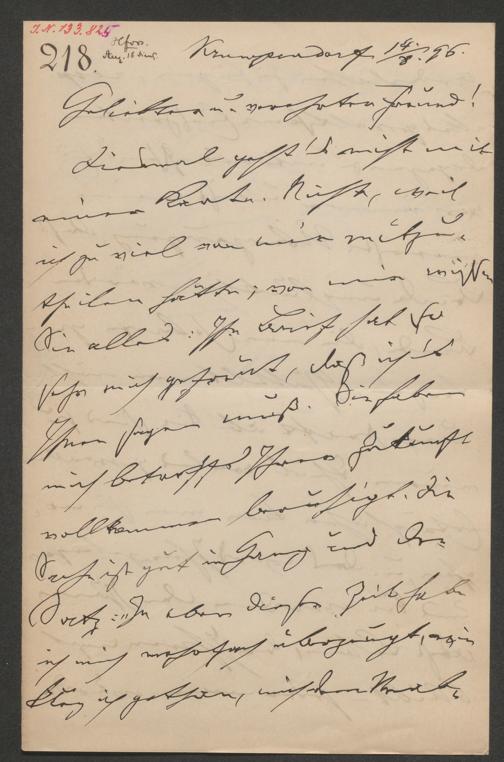 I.N. 133.825
218.
Krumpendorf 14/8. 96.
Geliebter u. verehrter Freund!
Diesmal geht's nicht mit
einer Karte. Nicht, weil
ich zu viel von mir mitzu-
theilen hätte; von mir wissen
Sie alles: Ihr Brief hat so
sehr mich gefreut, daß ich's
Ihnen sagen muß. Sie haben
mich betreffs Ihrer Zukunft
vollkommen beruhigt. Die
Sache ist gut im Gang und der
Satz: "In eben dieser Zeit habe
ich mich mehrfach überzeugt, wie
klug ich gethan, mich dem